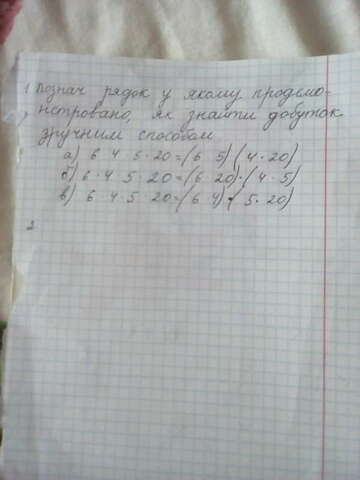 1 Познач рядок у якому продемо-
нстровано, як знайти добуток
зручним способом
а) 6 4 5 · 20 = (6 5) (4 · 20)
б) 6 · 4 5 · 20 = (6 20) · (4 · 5)
в) 6 4 · 5 20 = (6 4) · (5 · 20)
2